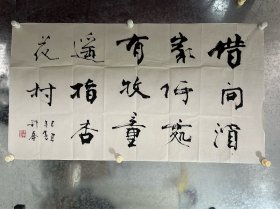 借问酒
家何處
有牧童
遥指杏
花村